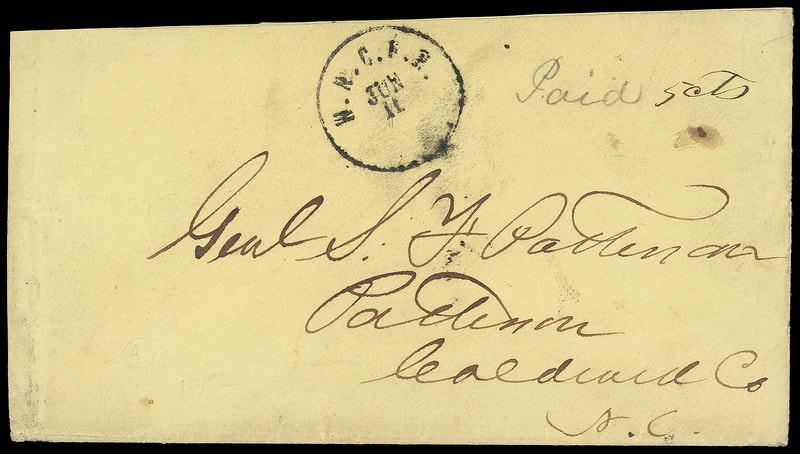 W.N.C.R.R.
JUN
11
Paid 5cts
Genl S. F. Patterson
Patterson
Caldwell Co
N.C.